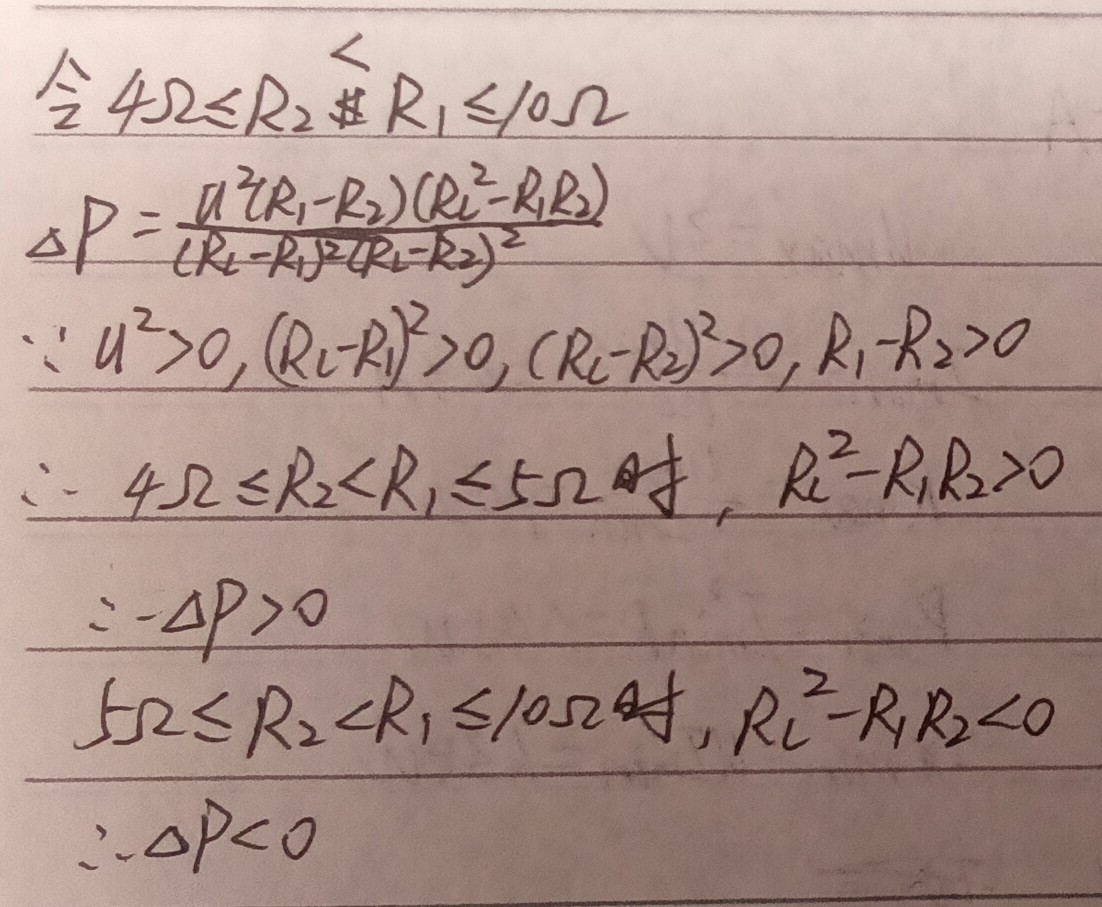 令 4Ω≤R₂<R₁≤10Ω
△P=U²(R₁-R₂)(R_L²-R₁R₂)/(R_L-R₁)²(R_L-R₂)²
∵ U²>0,(R_L-R₁)²>0,(R_L-R₂)²>0,R₁-R₂>0
∴ 4Ω≤R₂<R₁≤5Ω时,R_L²-R₁R₂>0
∴△P>0
5Ω≤R₂<R₁≤10Ω时,R_L²-R₁R₂<0
∴△P<0